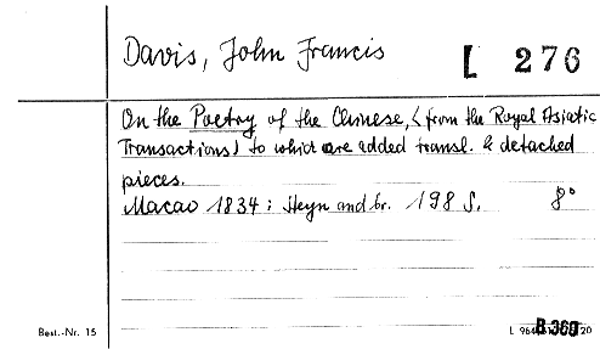 Davis, John Francis
[ 276
On the Poetry of the Chinese, (from the Royal Asiatic
Transactions) to which are added transl. & detached
pieces.
Macao 1834: Heyn and br. 198 S. 8°
Best.-Nr. 15
L 964 B 360 20